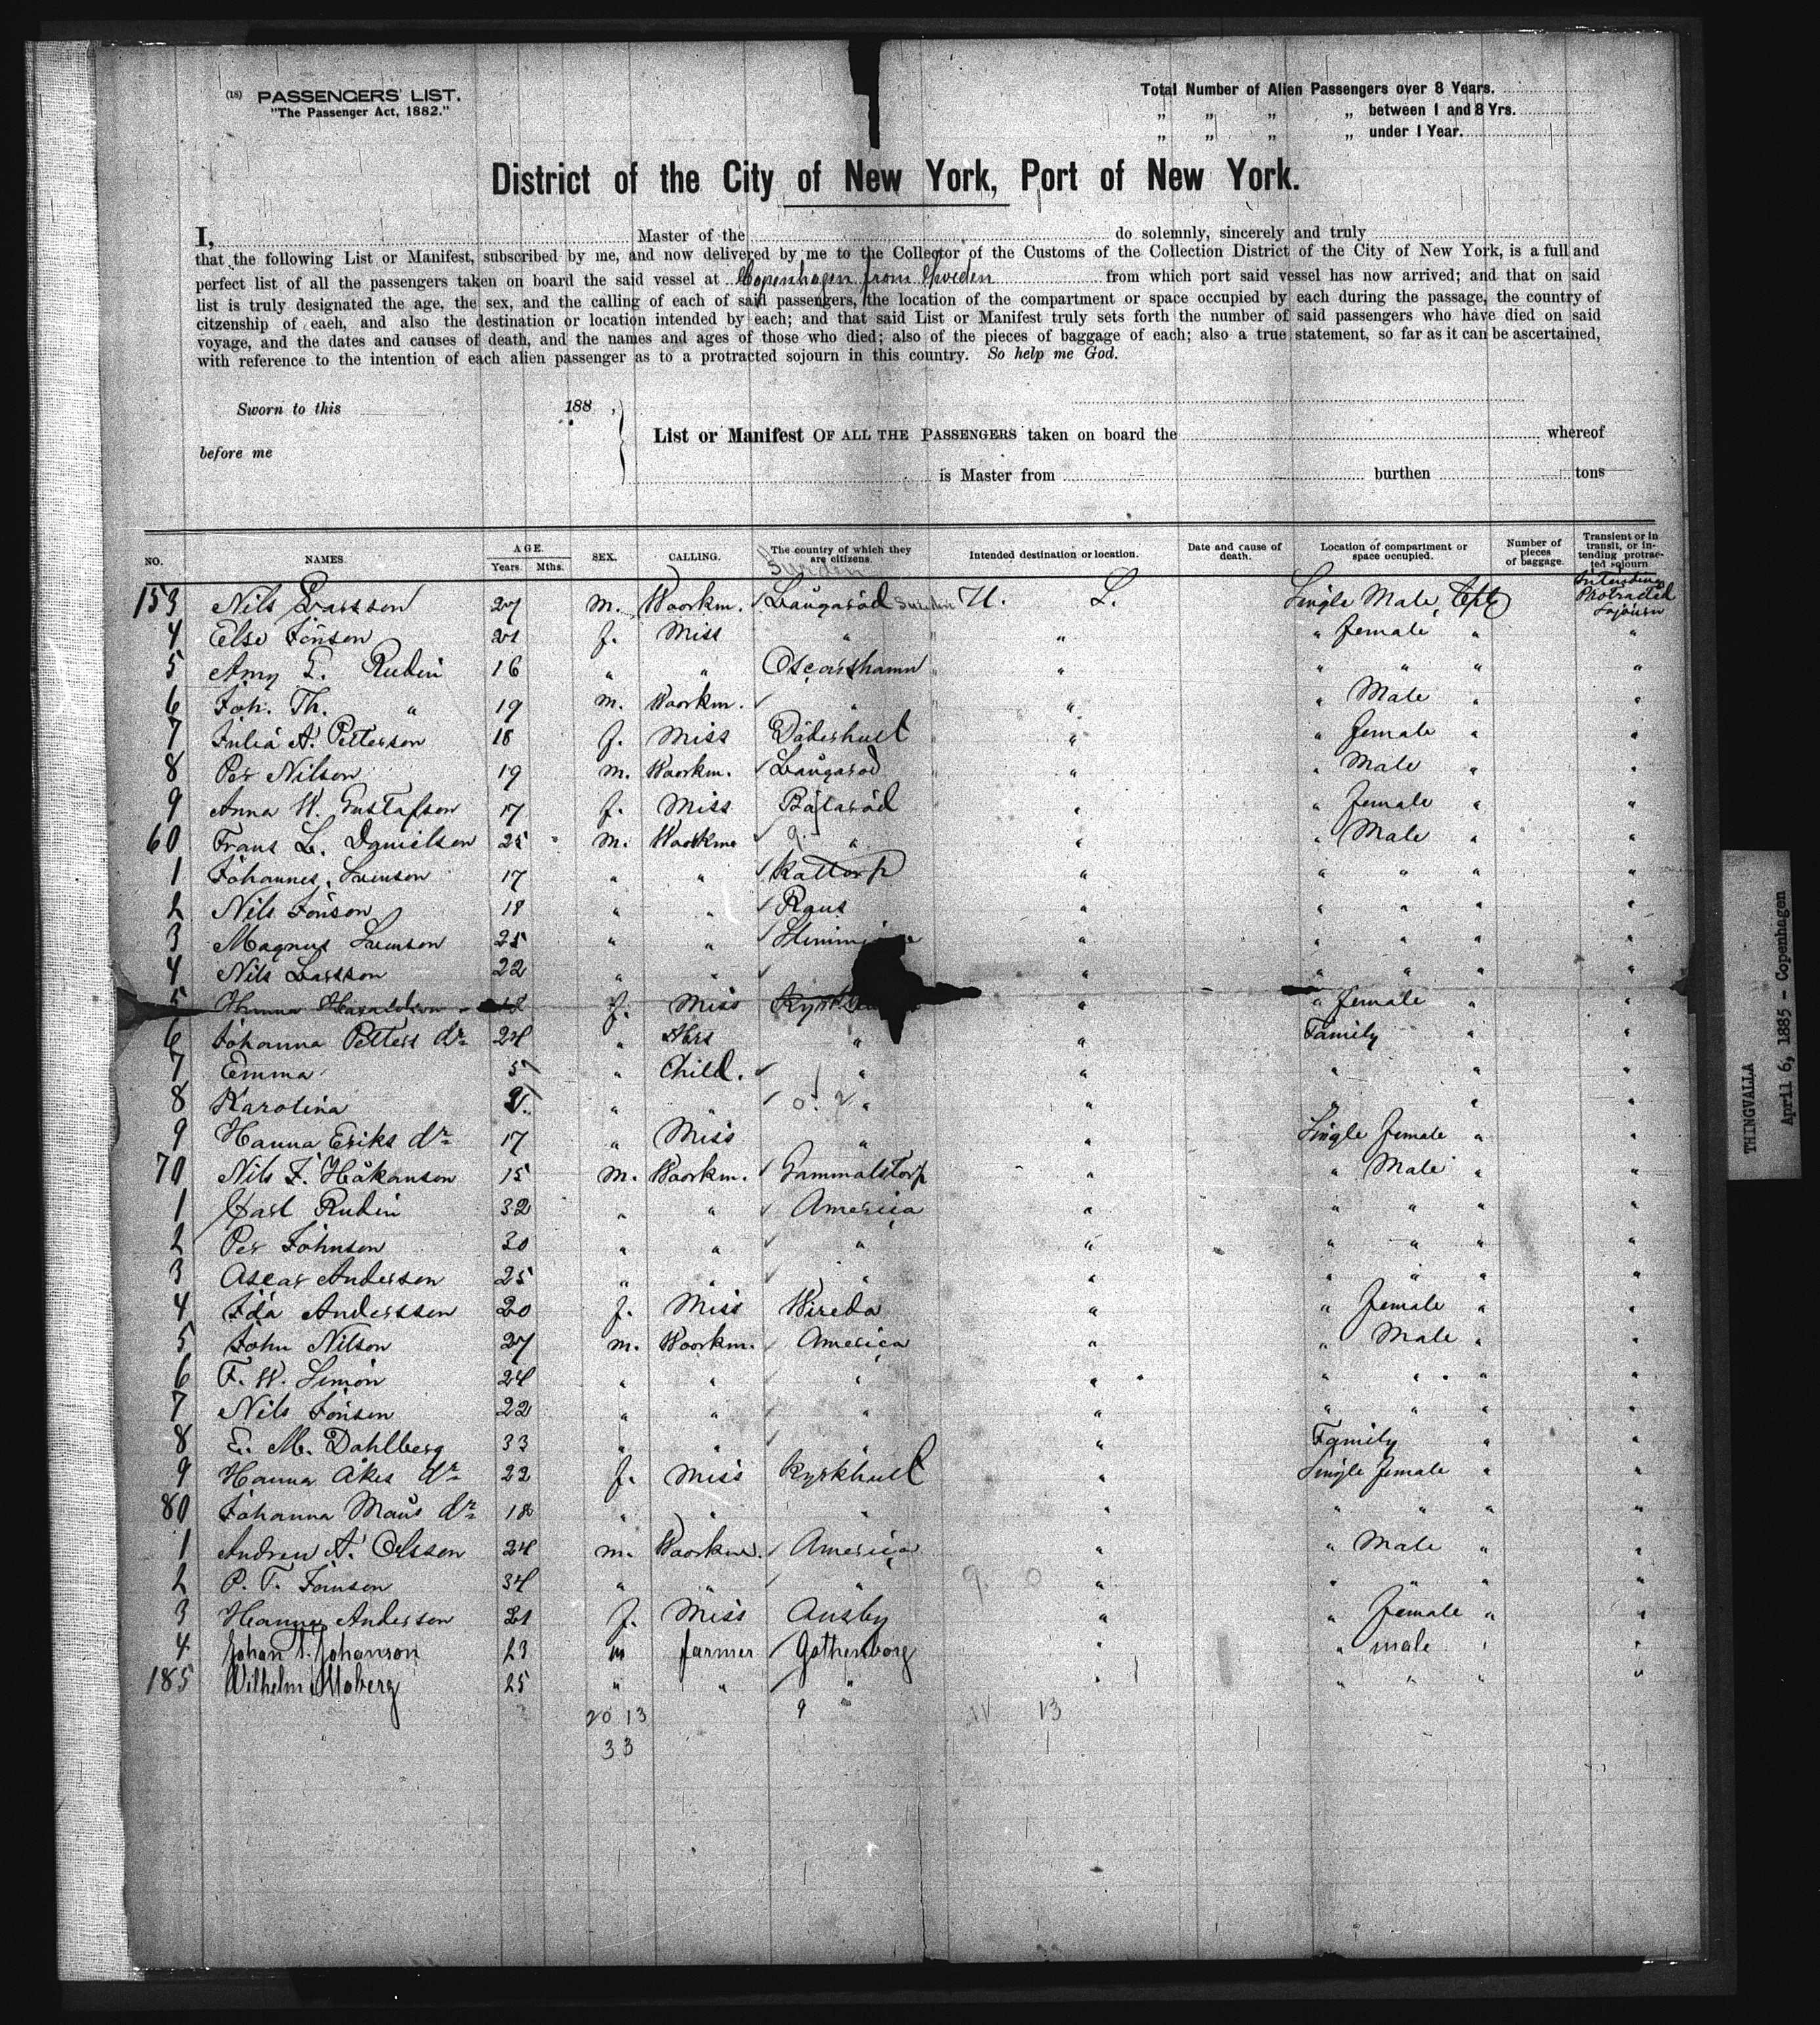 (18) PASSENGERS' LIST.
"The Passenger Act, 1882."
Total Number of Alien Passengers over 8 Years.
„ „ „ „ between 1 and 8 Yrs.
„ „ „ „ under 1 Year.
District of the City of New York, Port of New York.
I, Master of the do solemnly, sincerely and truly
that the following List or Manifest, subscribed by me, and now delivered by me to the Collector of the Customs of the Collection District of the City of New York, is a full and
perfect list of all the passengers taken on board the said vessel at Copenhagen from Sweden from which port said vessel has now arrived; and that on said
list is truly designated the age, the sex, and the calling of each of said passengers, the location of the compartment or space occupied by each during the passage, the country of
citzenship of eaeh, and also the destination or location intended by each; and that said List or Manifest truly sets forth the number of said passengers who have died on said
voyage, and the dates and causes of death, and the names and ages of those who died; also of the pieces of baggage of each; also a true statement, so far as it can be ascertained,
with reference to the intention of each alien passenger as to a protracted sojourn in this country. So help me God.
Sworn to this 188 ,
List or Manifest OF ALL THE PASSENGERS taken on board the whereof
before me
is Master from burthen tons
NO. NAMES. AGE. Years. Mths. SEX. CALLING. The country of which they are citizens. Intended destination or location. Date and cause of death. Location of compartment or space occupied. Number of pieces of baggage. Transient or in transit, or intending protracted sojourn
Sweden
153 Nils Larsson 27 m. Woorkm. Laŭgaröd Sweden U. S. Single Male, Cpt Intending Protracted Sojourn
4 Else Jönson 21 f. Miss " " " " female " "
5 Amy E. Rudin 16 " " Oscarshamn " " " " " "
6 Joh. Th. " 19 m. Woorkm. " " " " Male " "
7 Julia A. Petterson 18 f. Miss Döderhult " " " female " "
8 Per Nilson 19 m. Woorkm. Laŭgaröd " " " Male " "
9 Anna W. Gustafson 17 f. Miss " " female " "
60 Frans L. Danielson 25 m. Woorkm " " " Male " "
1 Johannes Svenson 17 " " Kattorp " " " " "
2 Nils Jönson 18 " " Raus " " " " "
3 Magnus Svenson 25 " " " " " " "
4 Nils Larsson 22 " " " " " " "
5 f. Miss " " female " "
6 Johanna Petters dr. 24 " Mrs " " Family " "
7 Emma 5 " Child. " " " " "
8 Karolina " " " " " " "
9 Hanna Eriks dr. 17 " Miss " " Single female " "
70 Nils J. Håkanson 15 m. Woorkm. Gammalstorp " " Male " "
1 Carl Rudin 32 " " America " " " " "
2 Per Johnson 30 " " " " " " " "
3 Oscar Anderson 25 " " " " " " " "
4 Ida Andersson 20 f. Miss Wireda " " female " "
5 John Nilson 27 m. Woorkm. America " " Male " "
6 F. W. Simon 24 " " " " " " " "
7 Nils Jönson 22 " " " " " " " "
8 E. M. Dahlberg 33 " " " " Family " "
9 Hanna Åkes dr. 22 f. Miss Kyrkhult " Single female " "
80 Johanna Måns dr. 18 " " " " " " " "
1 Andrew A. Olsson 24 m. Woorkm. America " " Male " "
2 P. T. 34 " " " 9. 0 " " " " "
3 Hanna Anderson 21 f. Miss Ausby " " female " "
4 Johan A. Johanson 23 m farmer Gothenborg " " male " "
185 Wilhelm Moberg 25 " " " " " " " "
20 13 9 13
33
THINGVALLA
April 6, 1885 - Copenhagen